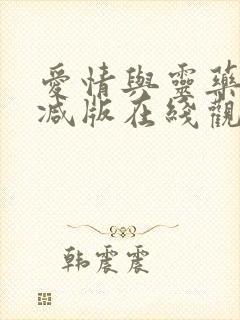 愛情與靈藥
減版在綫觀
韩震震